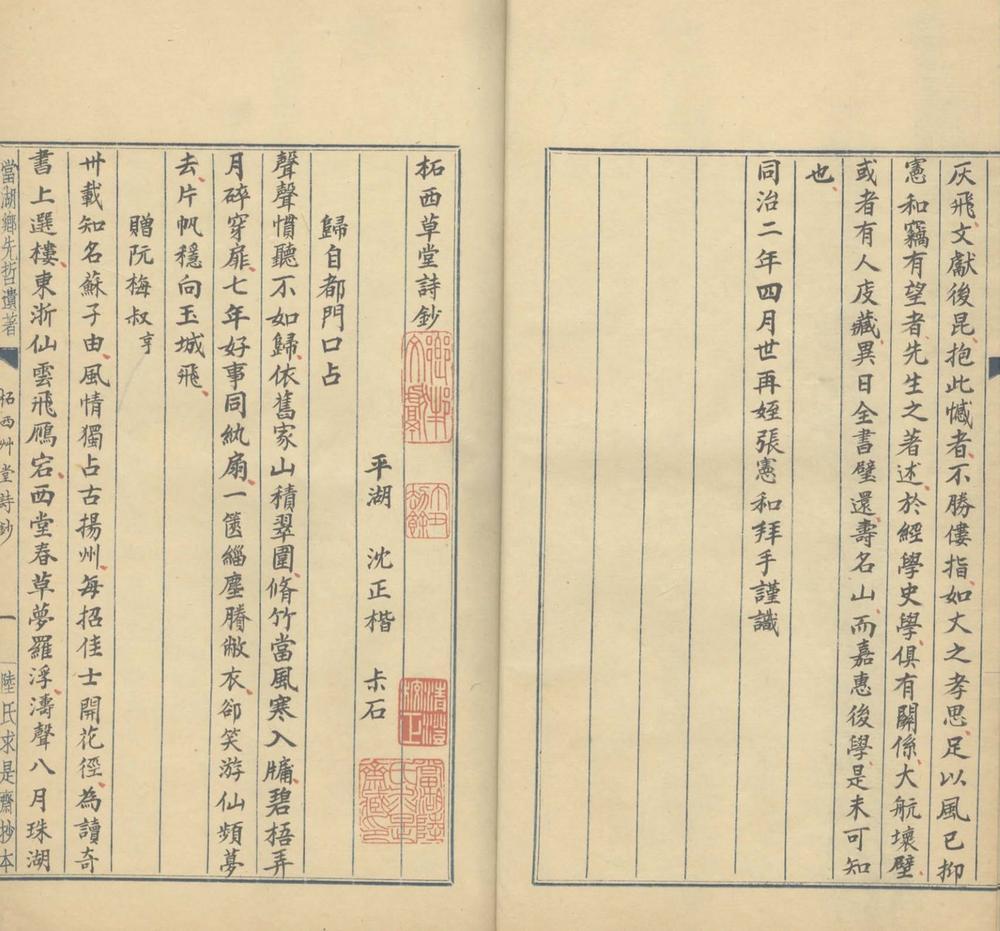 灰飛文獻後昆抱此憾者不勝僂指如丈之孝思足以風已抑
憲和竊有望者先生之著述於經學史學俱有關係大航壞壁
或者有人庋藏異日全書璧還壽名山而嘉惠後學是未可知
也
同治二年四月世再姪張憲和拜手謹識
柘西草堂詩鈔
平湖 沈正楷 尗石
歸自都門口占
聲聲慣聽不如歸依舊家山積翠圍脩竹當風寒入牗碧梧弄
月碎穿扉七年好事同紈扇一篋緇塵賸敝衣卻笑游仙頻夢
去片帆穩向玉城飛
贈阮梅叔亨
卅載知名蘇子由風情獨占古揚州每招佳士開花徑為讀奇
書上選樓東浙仙雲飛鴈宕西堂春草夢羅浮濤聲八月珠湖
當湖鄉先哲遺著 柘西艸堂詩鈔 一 陸氏求是齋抄本